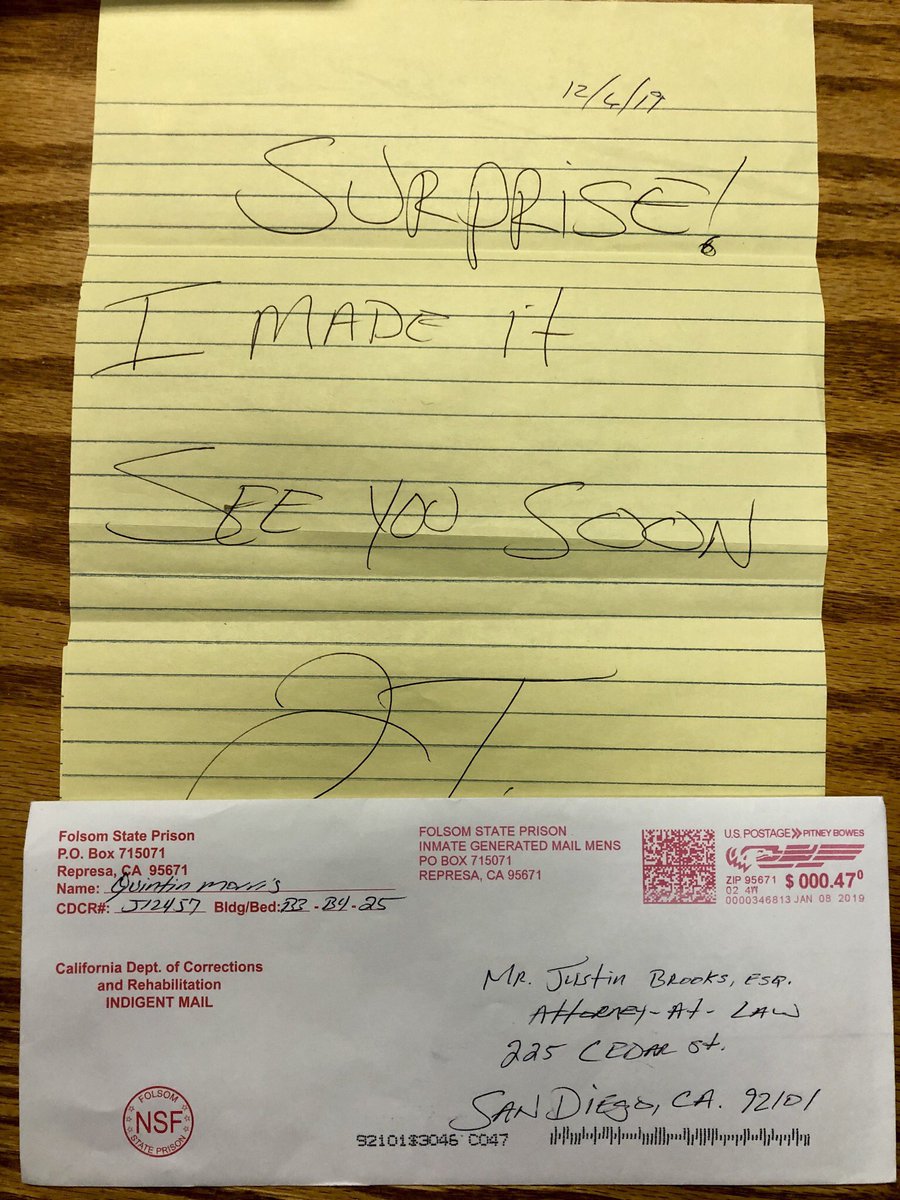 12/4/19
SURPRISE!
I MADE it
SEE YOU SOON
Folsom State Prison
P.O. Box 715071
Represa, CA 95671
Name: Quintin Morris
CDCR#: J12457 Bldg/Bed: B3 - B4 - 25
California Dept. of Corrections
and Rehabilitation
INDIGENT MAIL
FOLSOM
NSF
STATE PRISON
FOLSOM STATE PRISON
INMATE GENERATED MAIL MENS
PO BOX 715071
REPRESA, CA 95671
U.S. POSTAGE PITNEY BOWES
ZIP 95671
02 4W
$ 000.47⁰
0000346813 JAN 08 2019
MR. JUStiN BROOKS, ESQ.
AttORNEY-At-LAW
225 CEDAR St.
SAN DiEGO, CA. 92101
92101$3046 C047